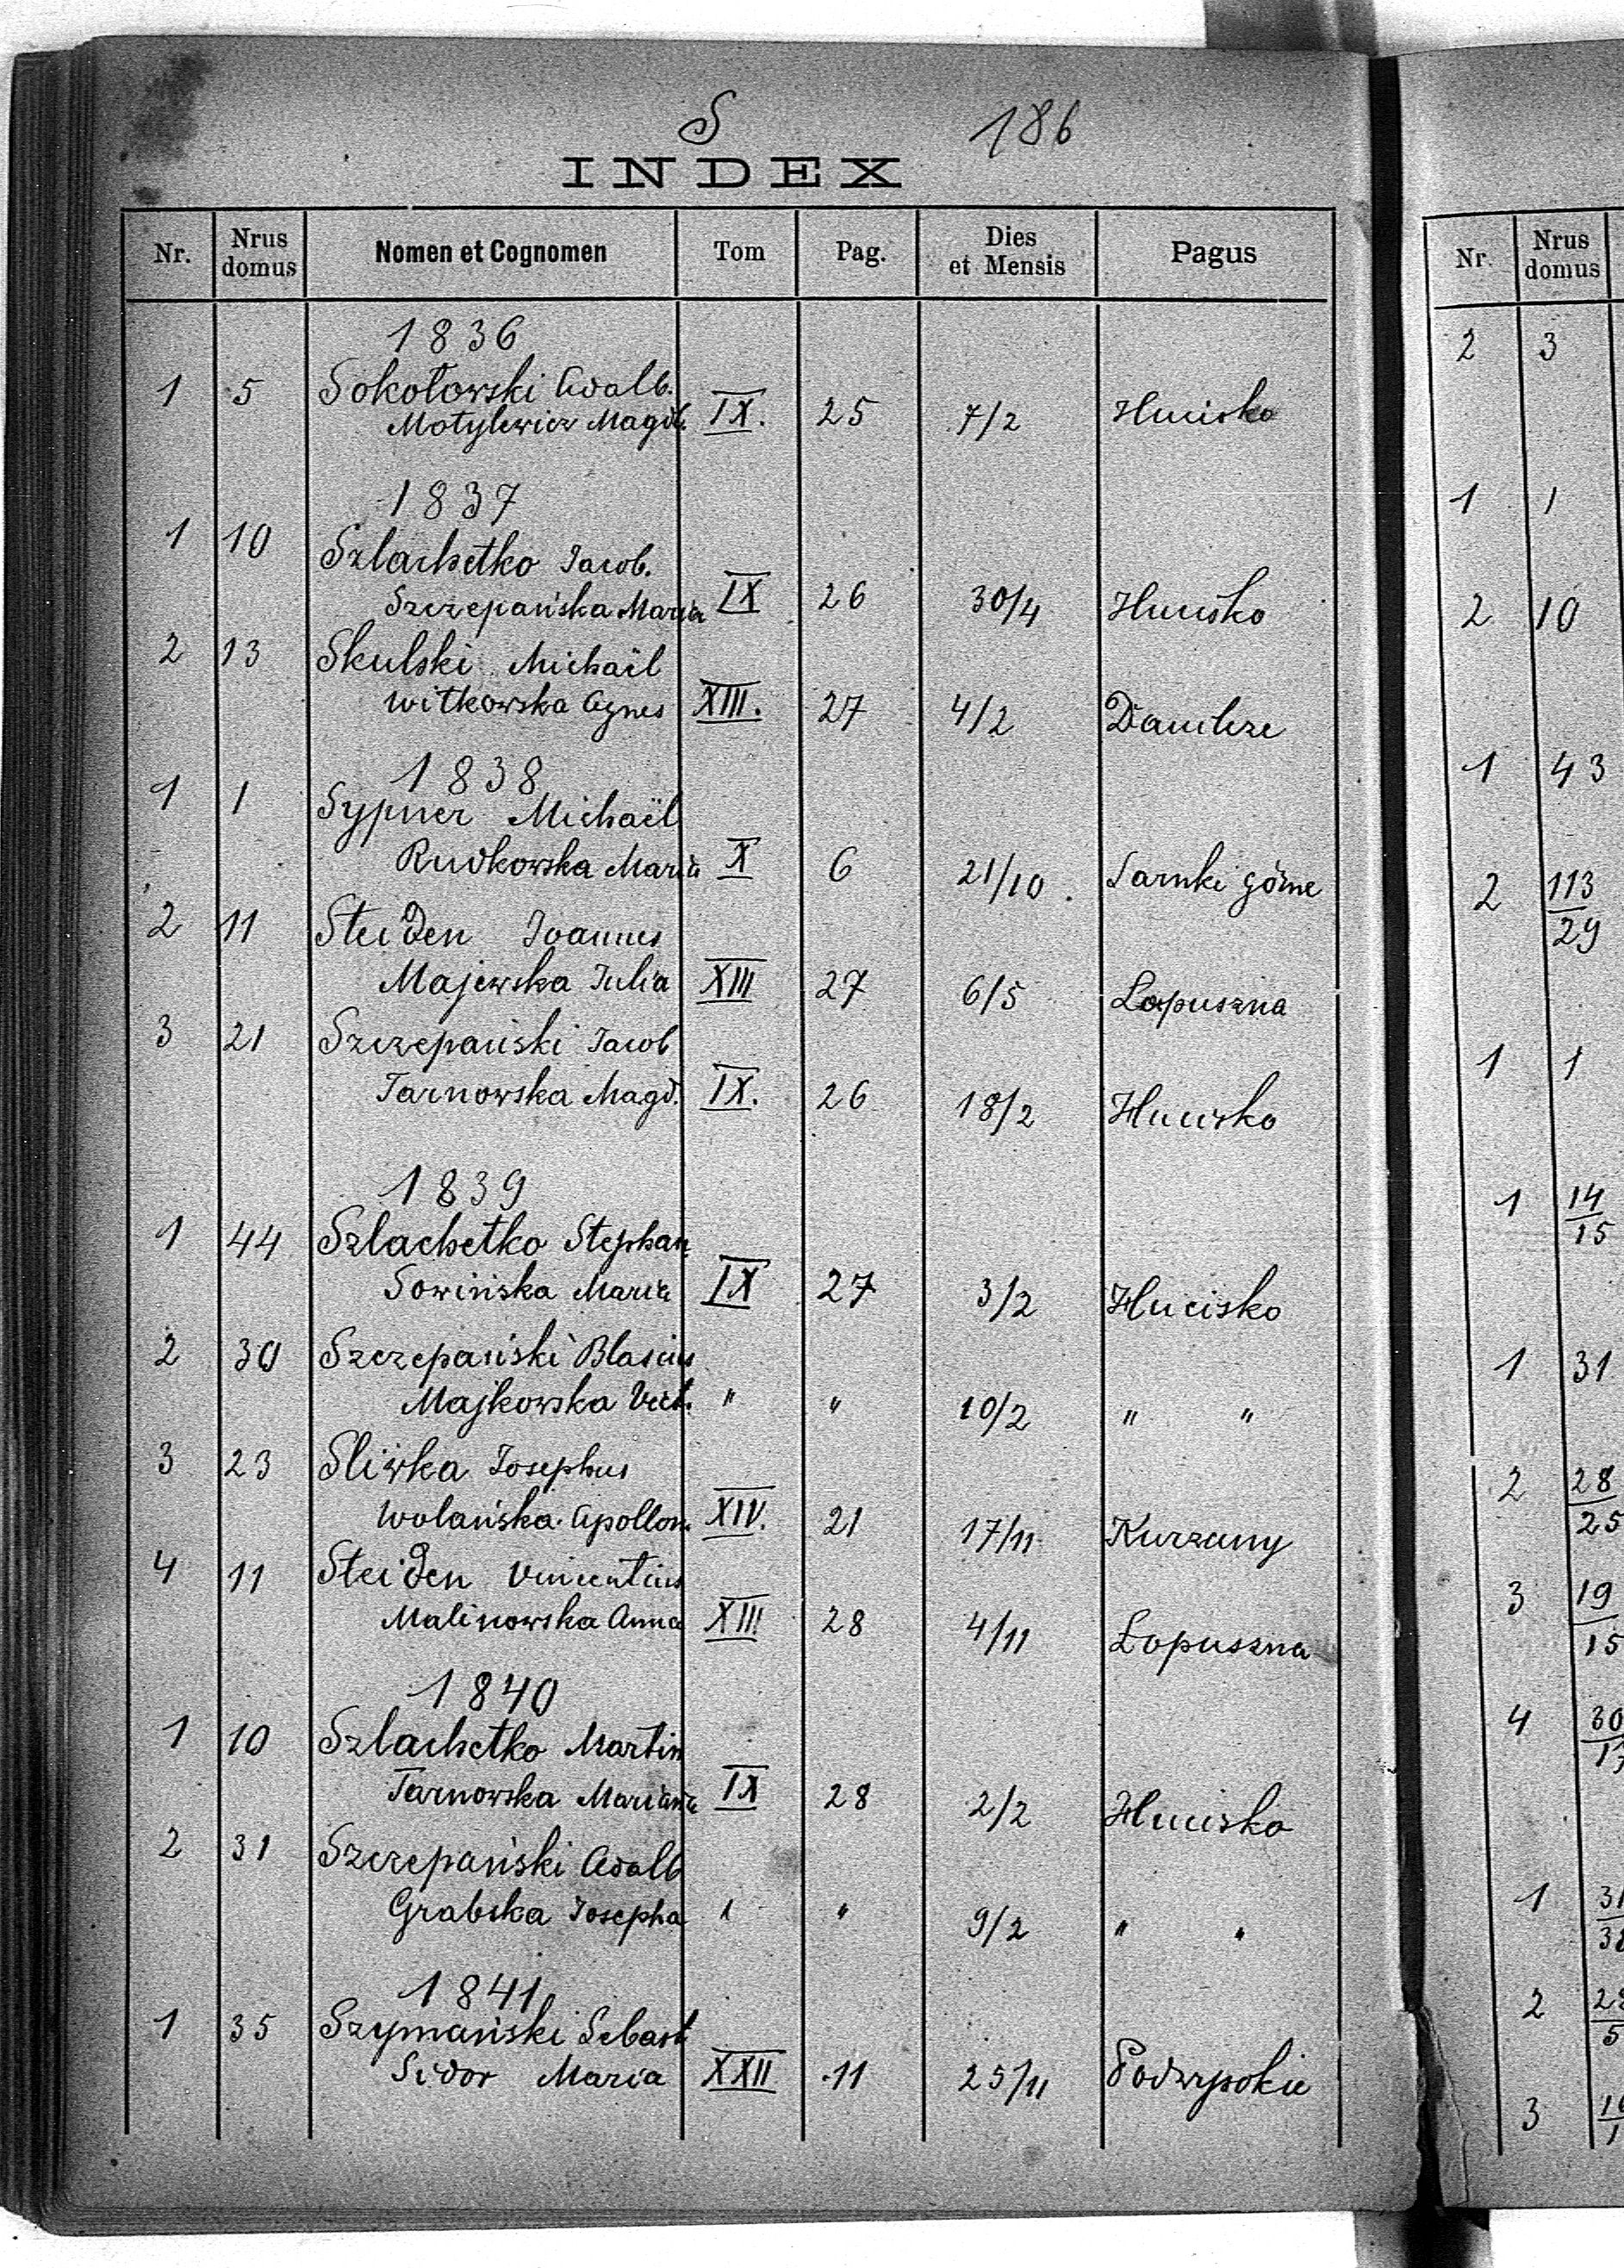 S 186
INDEX
Nr. Nrus domus Nomen et Cognomen Tom Pag. Dies et Mensis Pagus
1836
1 5 Sokołowski Adalb.
Motylewicz Magd. IX. 25 7/2 Hucisko
1837
1 10 Szlachetko Jacob.
Szczepańska Maria IX 26 30/4 Hucisko
2 13 Skulski Michaël
Witkowska Agnes XIII. 27 4/2 Danilcze
1838
1 1 Sypner Michaël
Rudkowska Maria X 6 21/10. Sarnki górne
2 11 Steiden Joannes
Majewska Julia XIII 27 6/5 Łopuszna
3 21 Szczepański Jacob
Tarnowska Magd. IX. 26 18/2 Hucisko
1839
1 44 Szlachetko Stephan
Sowińska Maria IX 27 3/2 Hucisko
2 30 Szczepański Blasius
Majkowska Vict. " " 10/2 " "
3 23 Śliwka Josephus
Wolańska Apollon. XIV. 21 17/11 Kurzany
4 11 Steiden Vincentius
Malinowska Anna XIII 28 4/11 Łopuszna
1840
1 10 Szlachetko Martin
Tarnowska Mariana IX 28 2/2 Hucisko
2 31 Szczepański Adalb
Grabska Josepha " " 9/2 " "
1841
1 35 Szymański Sebast
Sidor Maria XXII 11 25/11 Podwysokie
Nr. Nrus domus
2 3
1 1
2 10
1 43
2 113/29
1 1
1 14/15
1 31
2 28/25
3 19/15
4 30
1
2
3